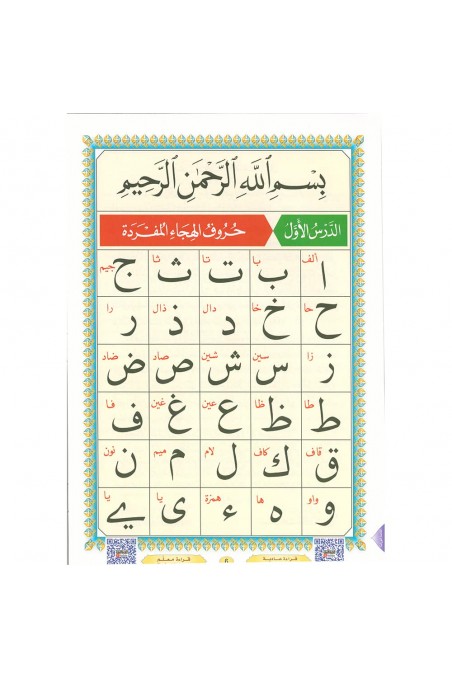 بِسْمِ اللَّهِ الرَّحْمَٰنِ الرَّحِيمِ
الدَّرْسُ الأَوَّلُ حُرُوفُ الهِجَاءِ المُفْرَدَةِ
ألف با تا ثا جيم
ا ب ت ث ج
حا خا دال ذال را
ح خ د ذ ر
زا سين شين صاد ضاد
ز س ش ص ض
طا ظا عين غين فا
ط ظ ع غ ف
قاف كاف لام ميم نون
ق ك ل م ن
واو ها همزة يا يا
و ه ء ى ے
قراءة معلم
6